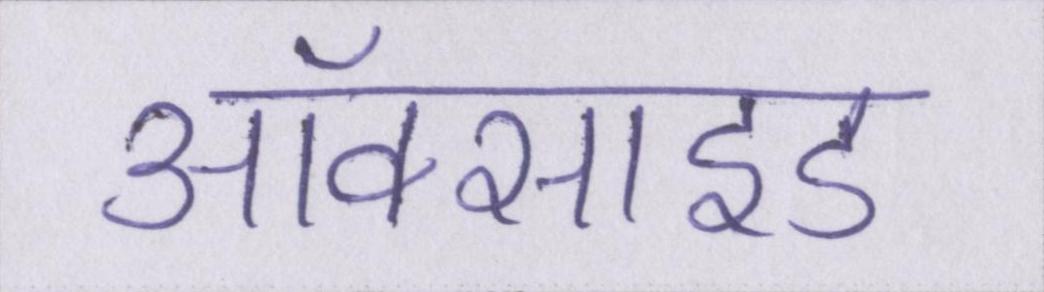 ऑक्साइड